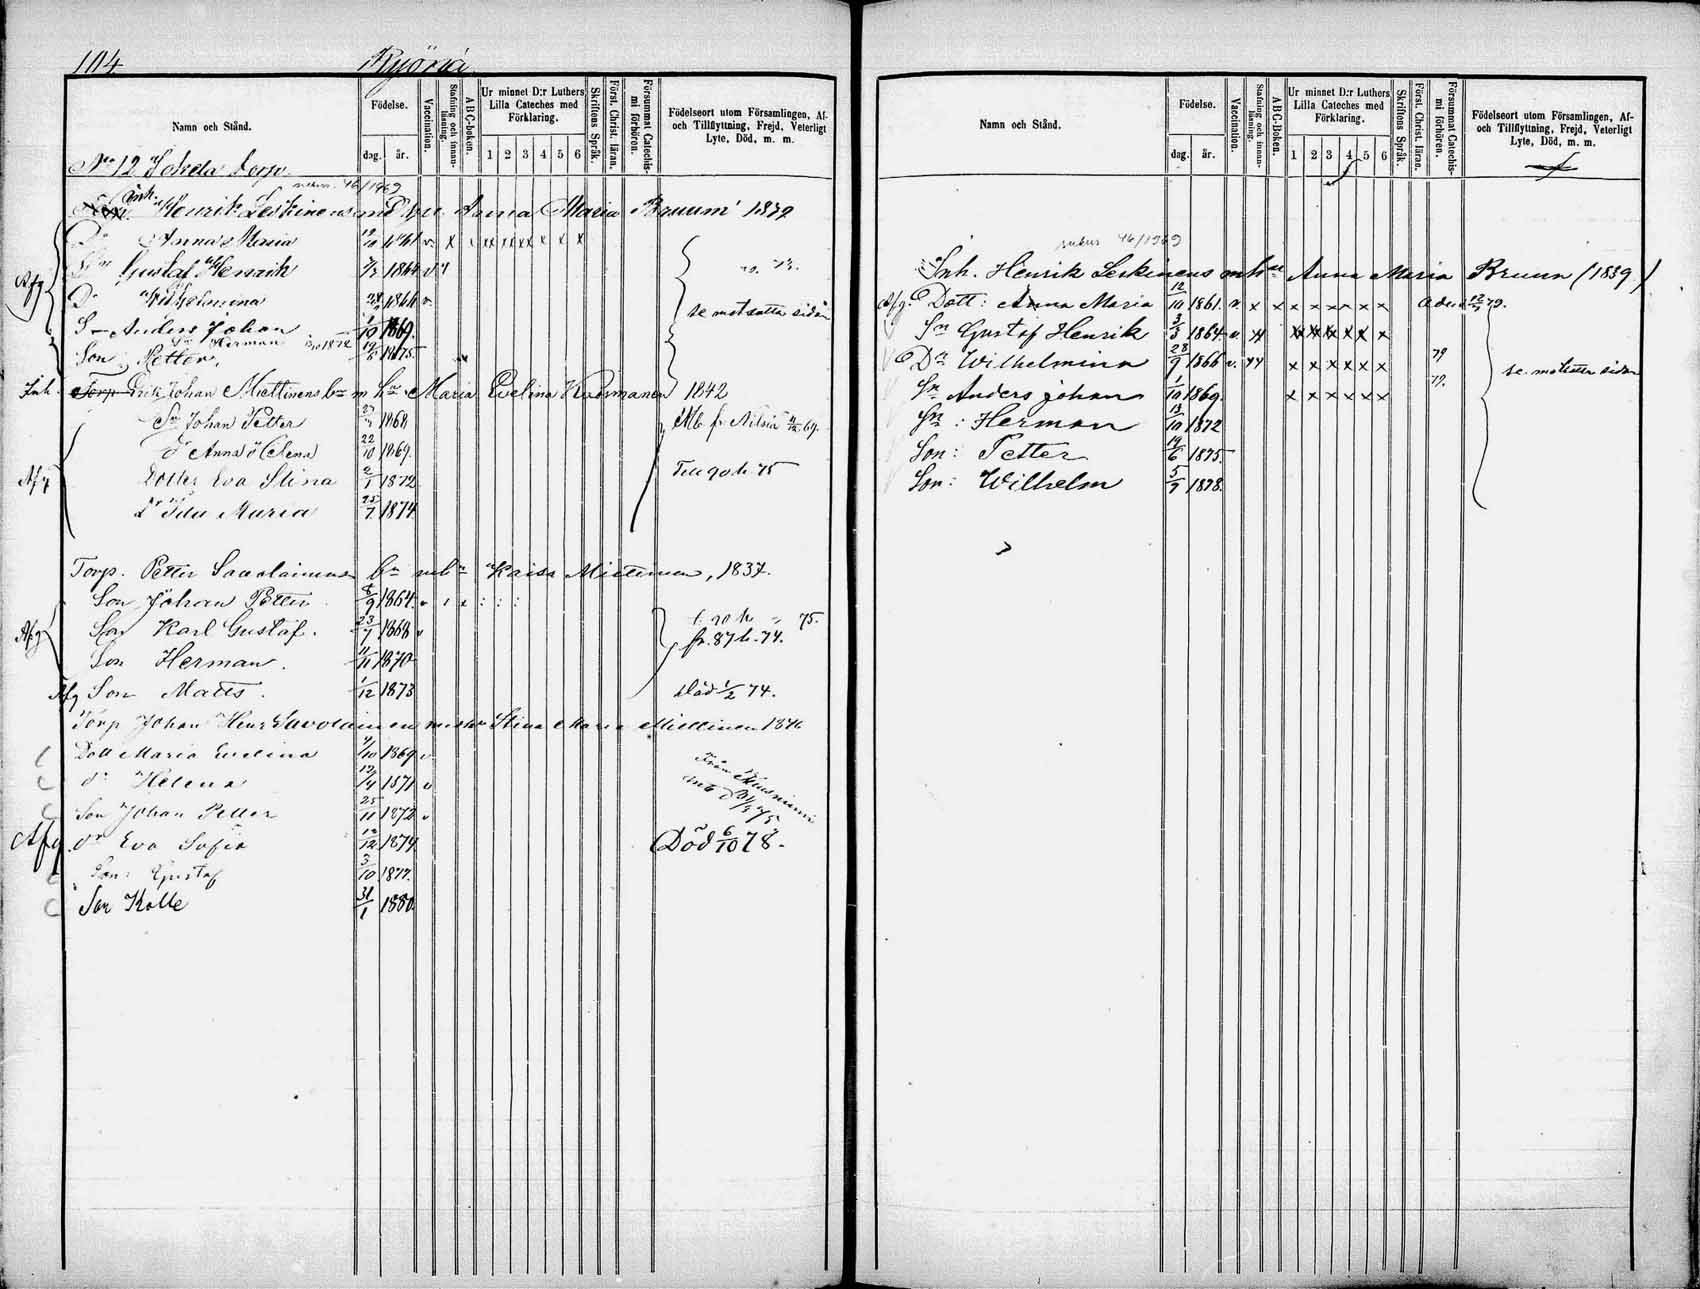 104
Namn och Stånd.
Födelse.
dag.
år.
Vaccination.
Stafning och innan-
läsning.
A B C-boken.
Ur minnet D:r Luthers
Lilla Cateches med
Förklaring.
1 2 3 4 5 6
Skriftens Språk.
Först. Christ. läran.
Försummat Catechis-
mi förhören.
Födelseort utom Församlingen, Af-
och Tillflyttning, Frejd, Veterligt
Lyte, Död, m. m.
No 12
Henrik Leskinens Anna Maria Bruun 1839
Dr Anna Maria 12/10 1861 v x x x x x x x
Afg Gustaf Henrik 3/3 1864 v
Dr Wilhelmina 28/9 1866 v
se motsatta sidan
Sn Anders Johan 1/10 1869.
Herman 13/10 1872
Son Petter. 19/6 1875
Inh. Torp Erik Johan Miettinens bn m hu Maria Evelina 1842
Sn Johan Petter 1868
Mb fr. Nilsiä 69.
Dr Anna Helena 22/10 1869.
Afg Dotter Eva Stina 2/1 1872
Till 90 h 75
Dr Ida Maria 25/7 1874
Torp. Petter Savolainens bn mhu Kaisa Miettinen, 1837.
Son Johan Petter 8/9 1864. v x : : :
t. 90 h 75.
Afg Son Karl Gustaf. 23/7 1868 v
fr. 87 h. 74.
Son Herman. 11/11 1870
Afg Son Matts. 1/12 1873
Död 1/2 74.
Torp Johan Henr Savolainen m hu Stina Maria Miettinen
Dott Maria Evelina 9/10 1869 v
dr Helena 12/4 1871 v
Son Johan Petter 25/11 1872 v
Afg dr Eva Sofia 12/12 1874
Död 6/10 78.
Son: Gustaf 3/10 1877.
Son Kalle 31/1 1880.
Namn och Stånd.
Födelse.
dag.
år.
Vaccination.
Stafning och innan-
läsning.
A B C-Boken.
Ur minnet D:r Luthers
Lilla Cateches med
Förklaring.
1 2 3 4 5 6
Skriftens Språk.
Först. Christ. läran.
Försummat Catechis-
mi förhören.
Födelseort utom Församlingen, Af-
och Tillflyttning, Frejd, Veterligt
Lyte, Död, m. m.
46/1969
Inh. Henrik Leskinens m hu Anna Maria Bruun (1839)
Afg. Dott: Anna Maria 12/10 1861. v. x x x x x x x x 79.
Sn Gustaf Henrik 3/3 1864. v. x x x x x x x
Dr Wilhelmina 28/9 1866 v. x x x x x x 79
se motsatta sidan
Sn Anders Johan 1/10 1869. x x x x x x 79.
Sn: Herman 13/10 1872
Son: Petter 19/6 1875
Son: Wilhelm 5/9 1878.